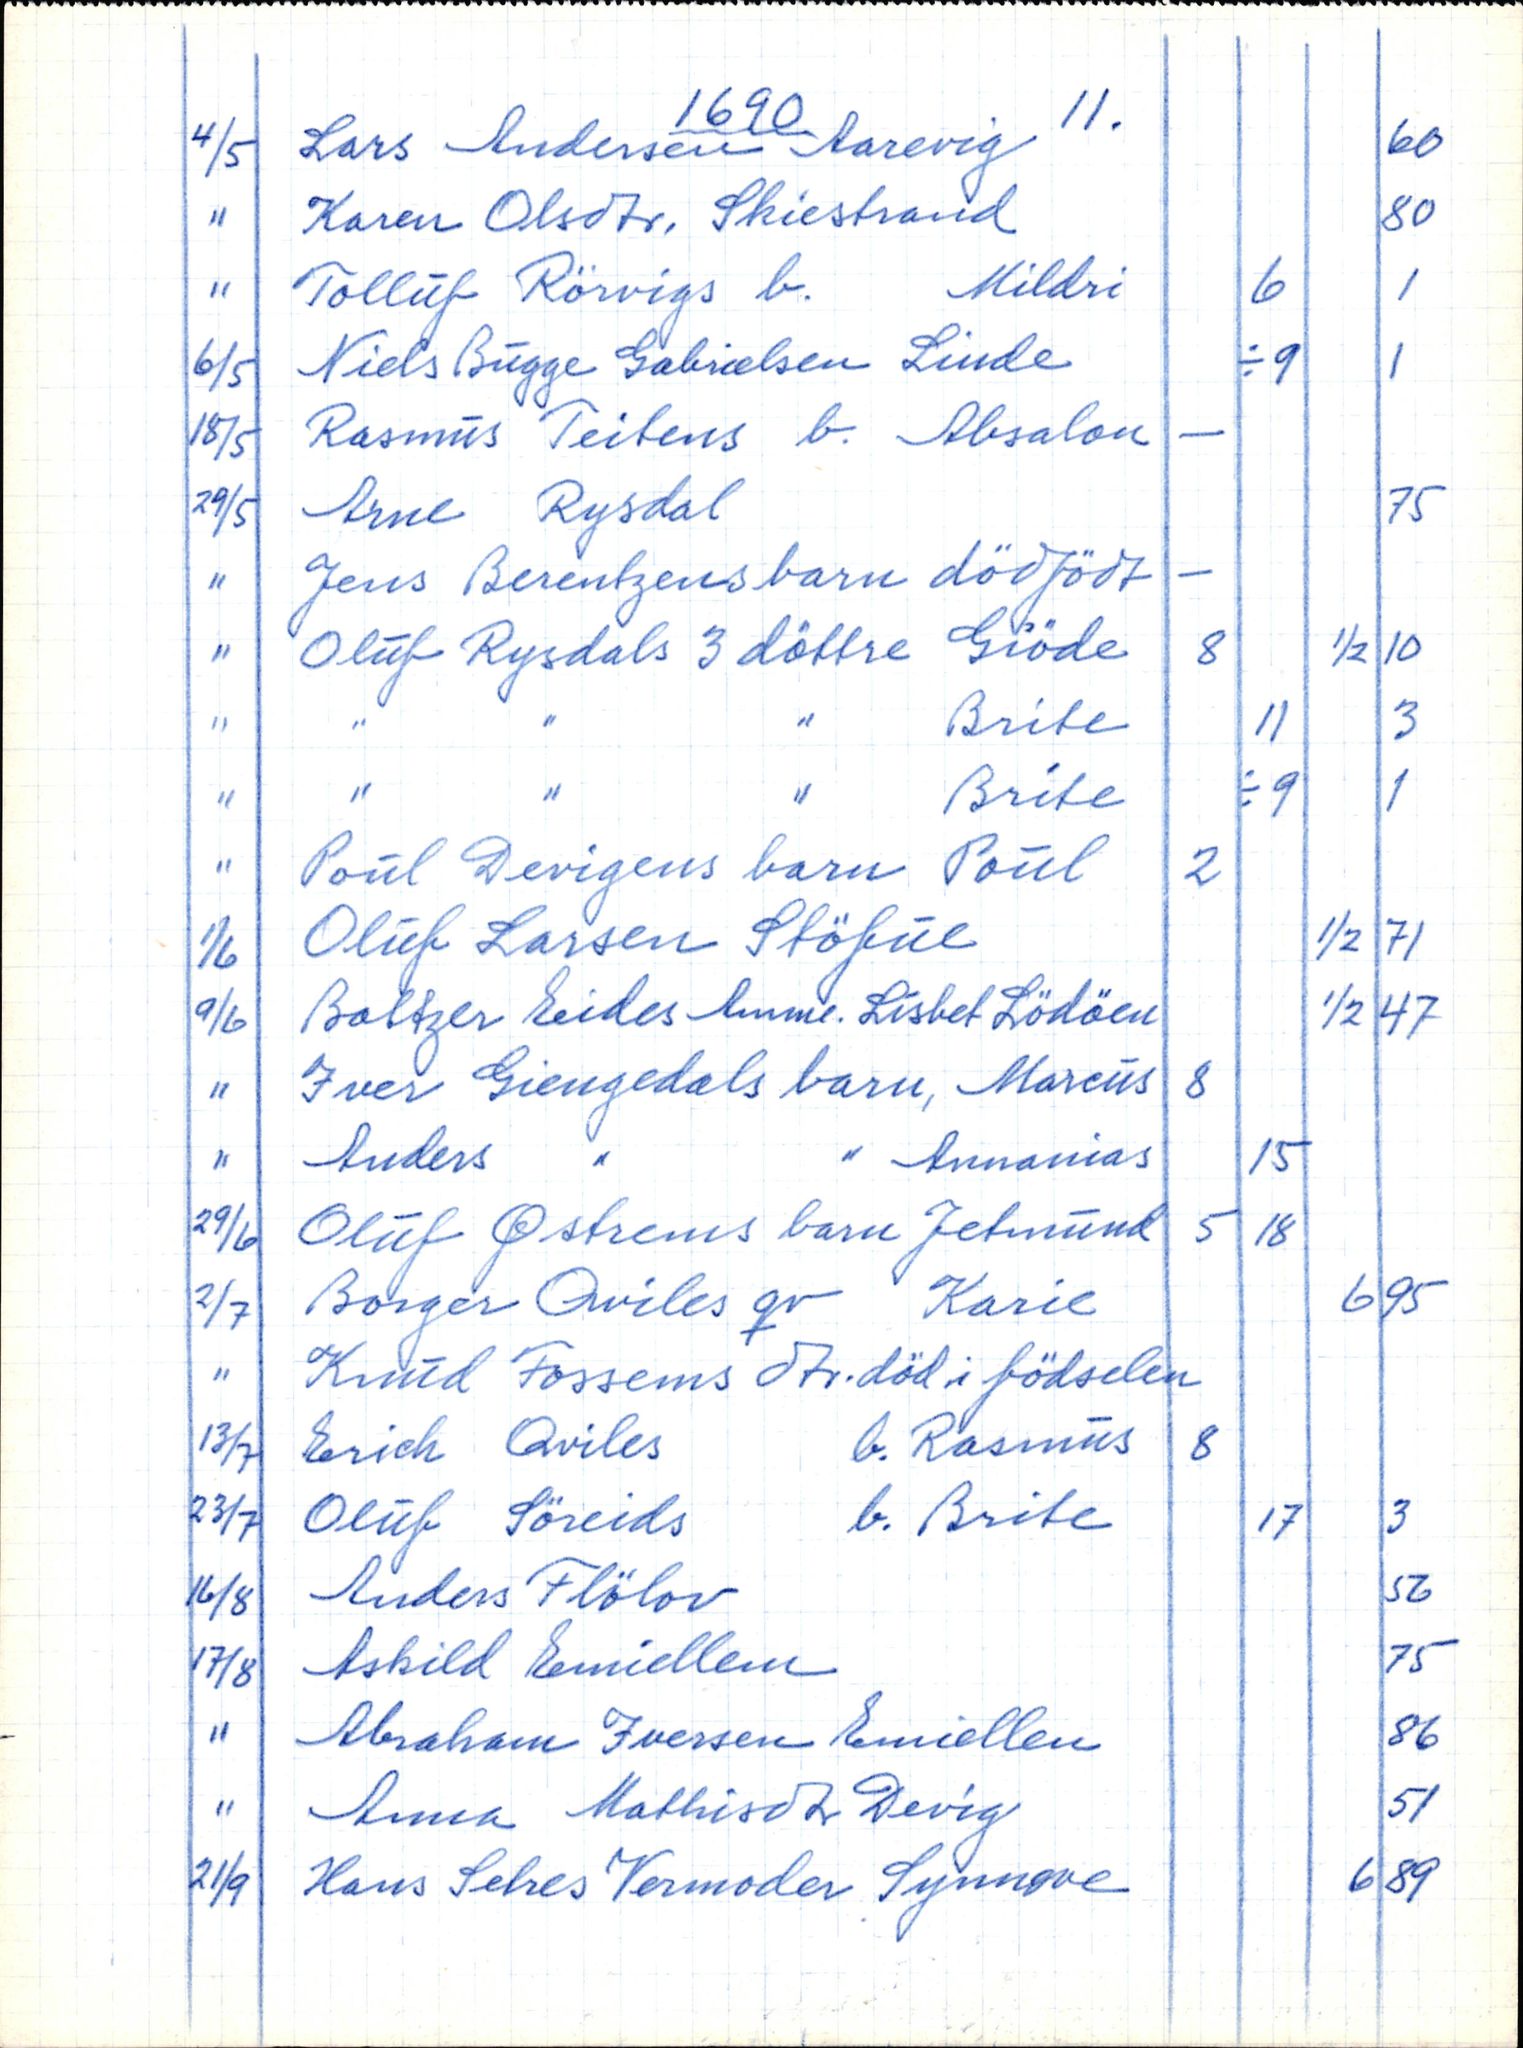 1690 11.
4/5 Lars Andersen Aarevig 60
" Karen Olsdtr. Skiestrand 80
" Tolluf Rörvigs b. Mildri 6 1
6/5 Niels Bugge Gabrielsen Linde ÷9 1
18/5 Rasmus Teitens b. Absalon —
29/5 Arne Rysdal 75
" Jens Berentzens barn dödfödt —
" Oluf Rysdals 3 döttre Giöde 8 1/2 10
" " " " Brite 11 3
" " " " Brite ÷9 1
" Poul Devigens barn Poul 2
1/6 Oluf Larsen Stöfue 1/2 71
9/6 Baltzer Eides Amme. Lisbet Lödöen 1/2 47
" Iver Giengedals barn, Marcus 8
" Anders " " Annanias 15
29/6 Oluf Østrems barn Jetmund 5 18
2/7 Borger Qviles qv Karie 6 95
" Knud Fossems dtr. död i födselen
13/7 Erich Qviles b. Rasmus 8
23/7 Oluf Söreids b. Brite 17 3
16/8 Anders Flölov 56
17/8 Askild Emiellem 75
" Abraham Iversen Emiellen 86
" Anna Mathisdtr Devig 51
21/9 Hans Selres Vermoder Synnove 6 89